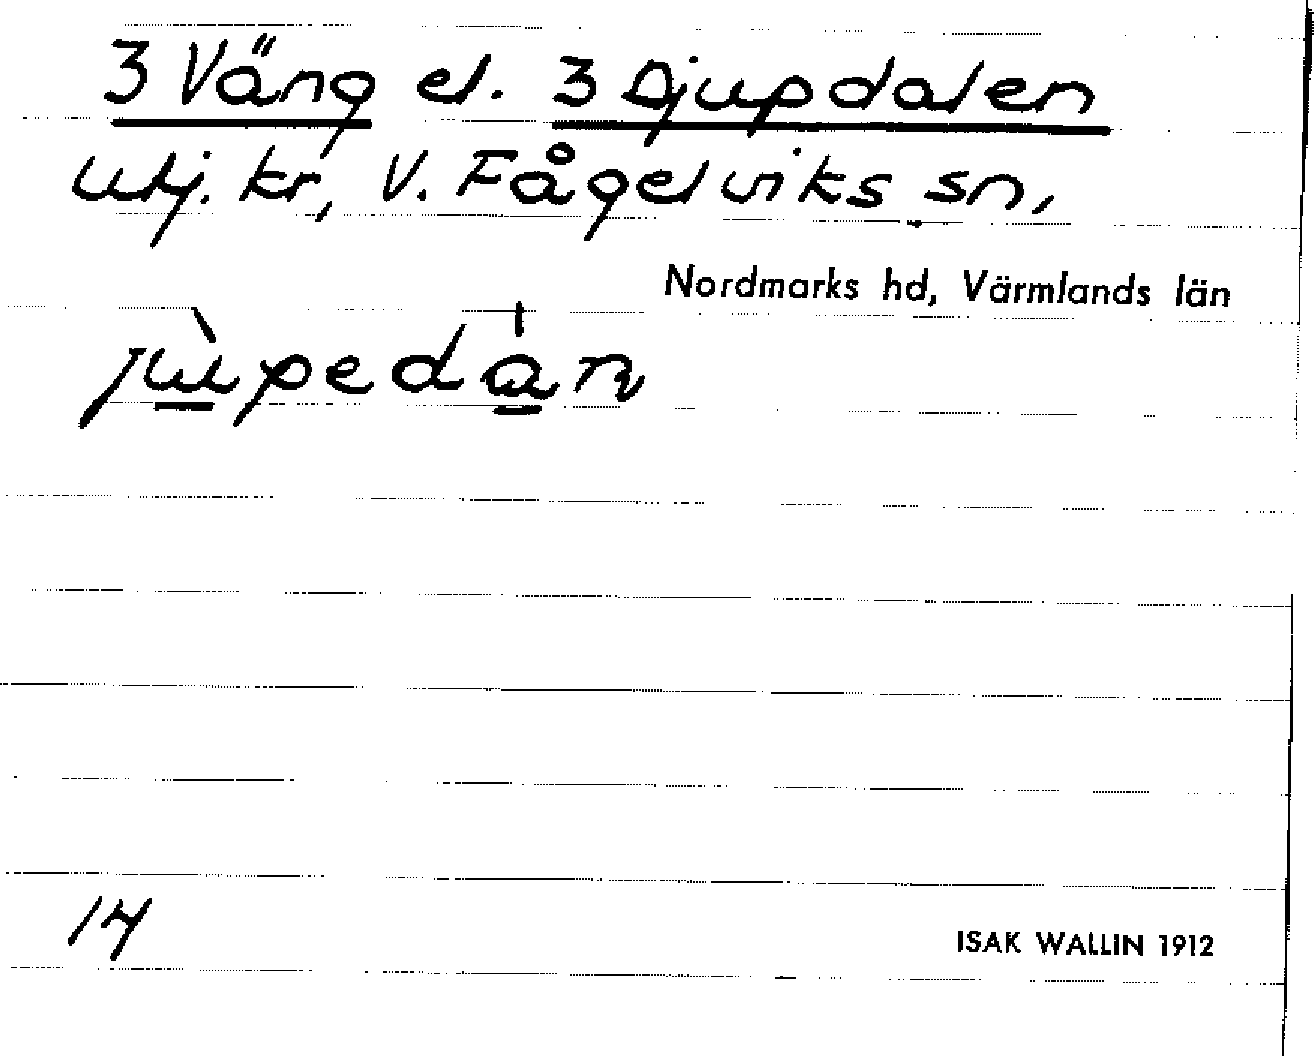 3 Väng el. 3 Djupdalen
utj. kr, V. Fågelviks sn,
Nordmarks hd, Värmlands län
jùpedán
14
ISAK WALLIN 1912